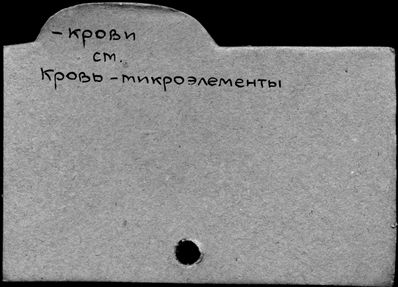 -крови
ст.
Кровь-микроэлементы